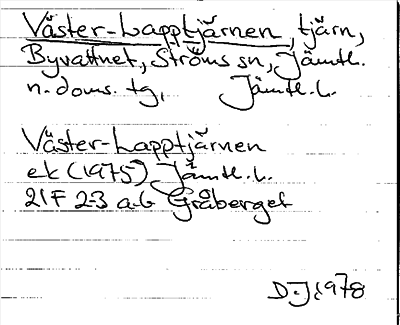 Väster-Lapptjärnen, tjärn,
Byvattnet, Ströms sn, Jämtl.
n. doms. tg, Jämtl. L.
Väster-Lapptjärnen
ek (1975) Jämtl. L.
21F 2-3 a-b Gråberget
D.J. 1978